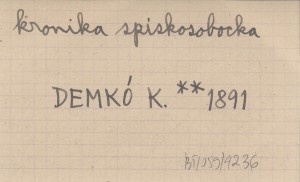 kronika spiskosobocka
DEMKÓ K. ** 1891